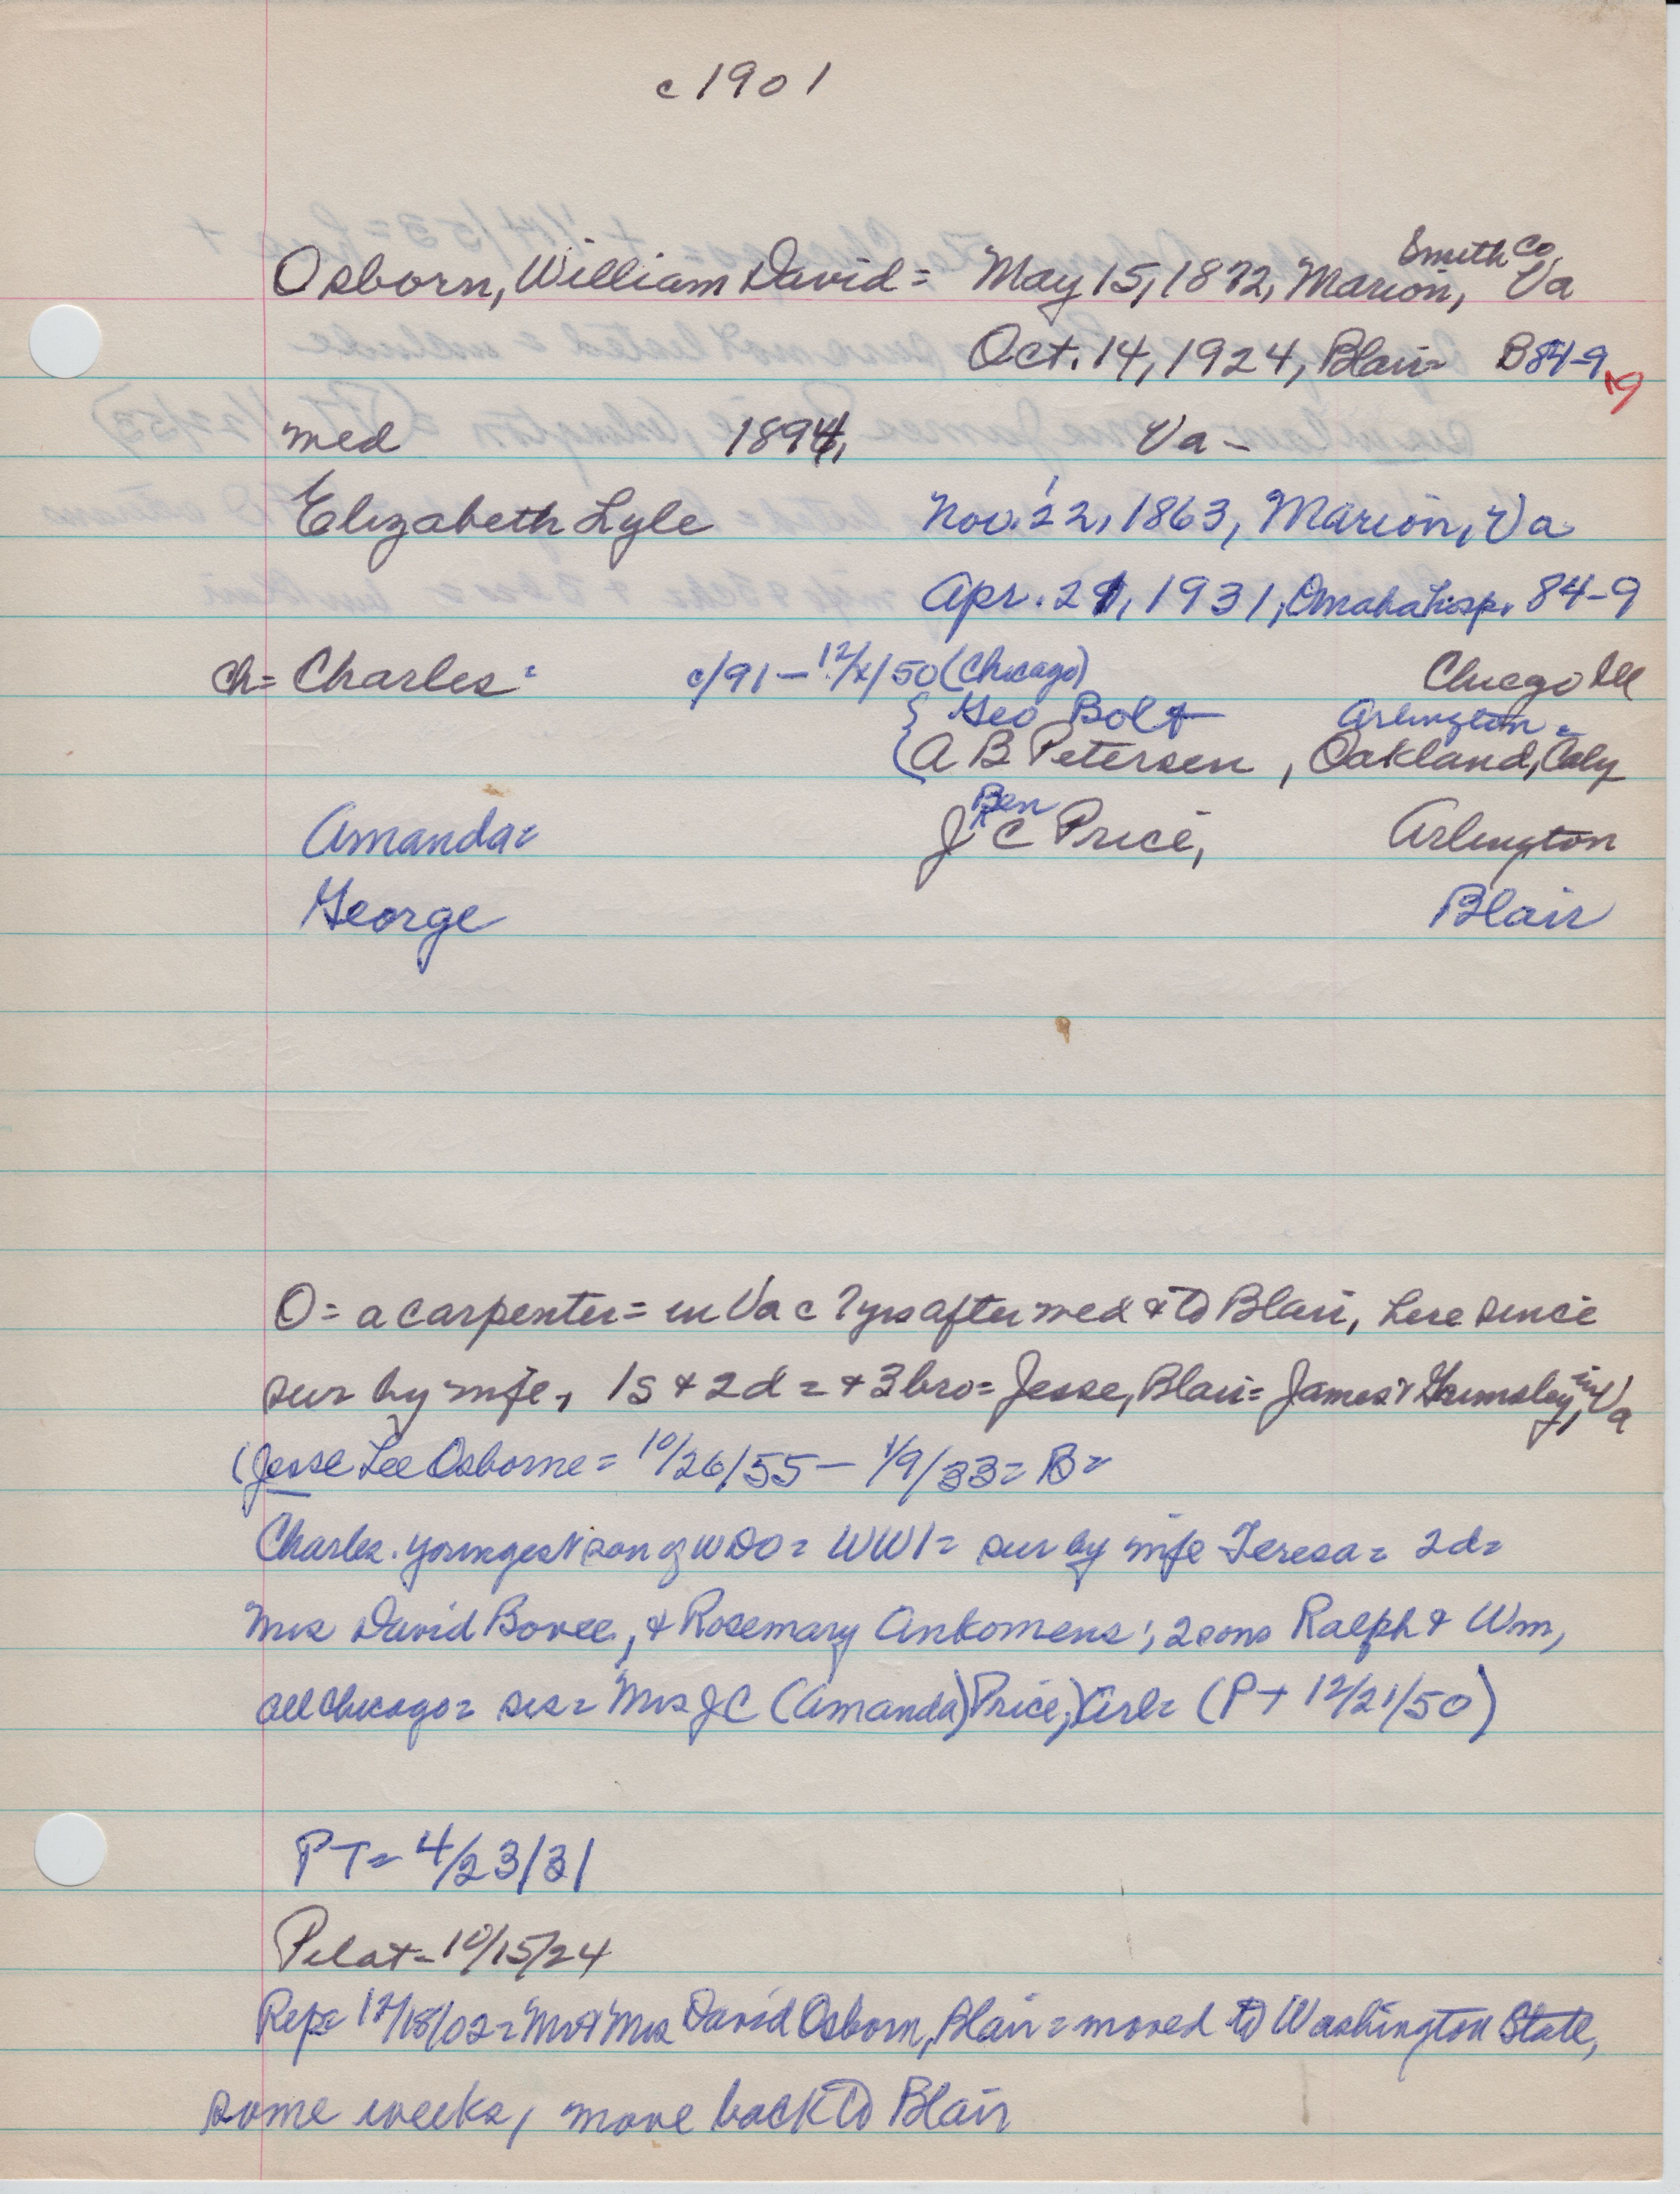 c 1901
Smith Co
Osborn, William David = May 15, 1872, Marion, Va
Oct. 14, 1924, Blair = B84-9
19
med 1894, Va -
Elizabeth Lyle Nov. 22, 1863, Marion, Va
Apr. 21, 1931, Omaha Hosp. 84-9
ch = Charles = c/91 - 12/x/50 (Chicago) Chicago Ill
{ Geo Bolt Arlington =
( A B Petersen , Oakland, Calif
Ben
Amanda = J C Price, Arlington
George Blair
O = a carpenter = in Va c 7 yrs after med & to Blair, here since
sur by wife, 1s & 2d = + 3 bro = Jesse, Blair = James & Grimsley, in Va
(Jesse Lee Osborne = 10/26/55 - 1/9/33 = B =
Charles. youngest son of WDO = WW1 = sur by wife Teresa = 2d =
Mrs David Bovee, & Rosemary Ankomens; 2 sons Ralph & Wm,
all Chicago = sis = Mrs J C (Amanda) Price, Arl = (PT 12/21/50)
PT = 4/23/31
Pilot = 10/15/24
Rep = 12/18/02 = Mr & Mrs David Osborn, Blair = moved to Washington State,
some weeks, move back to Blair